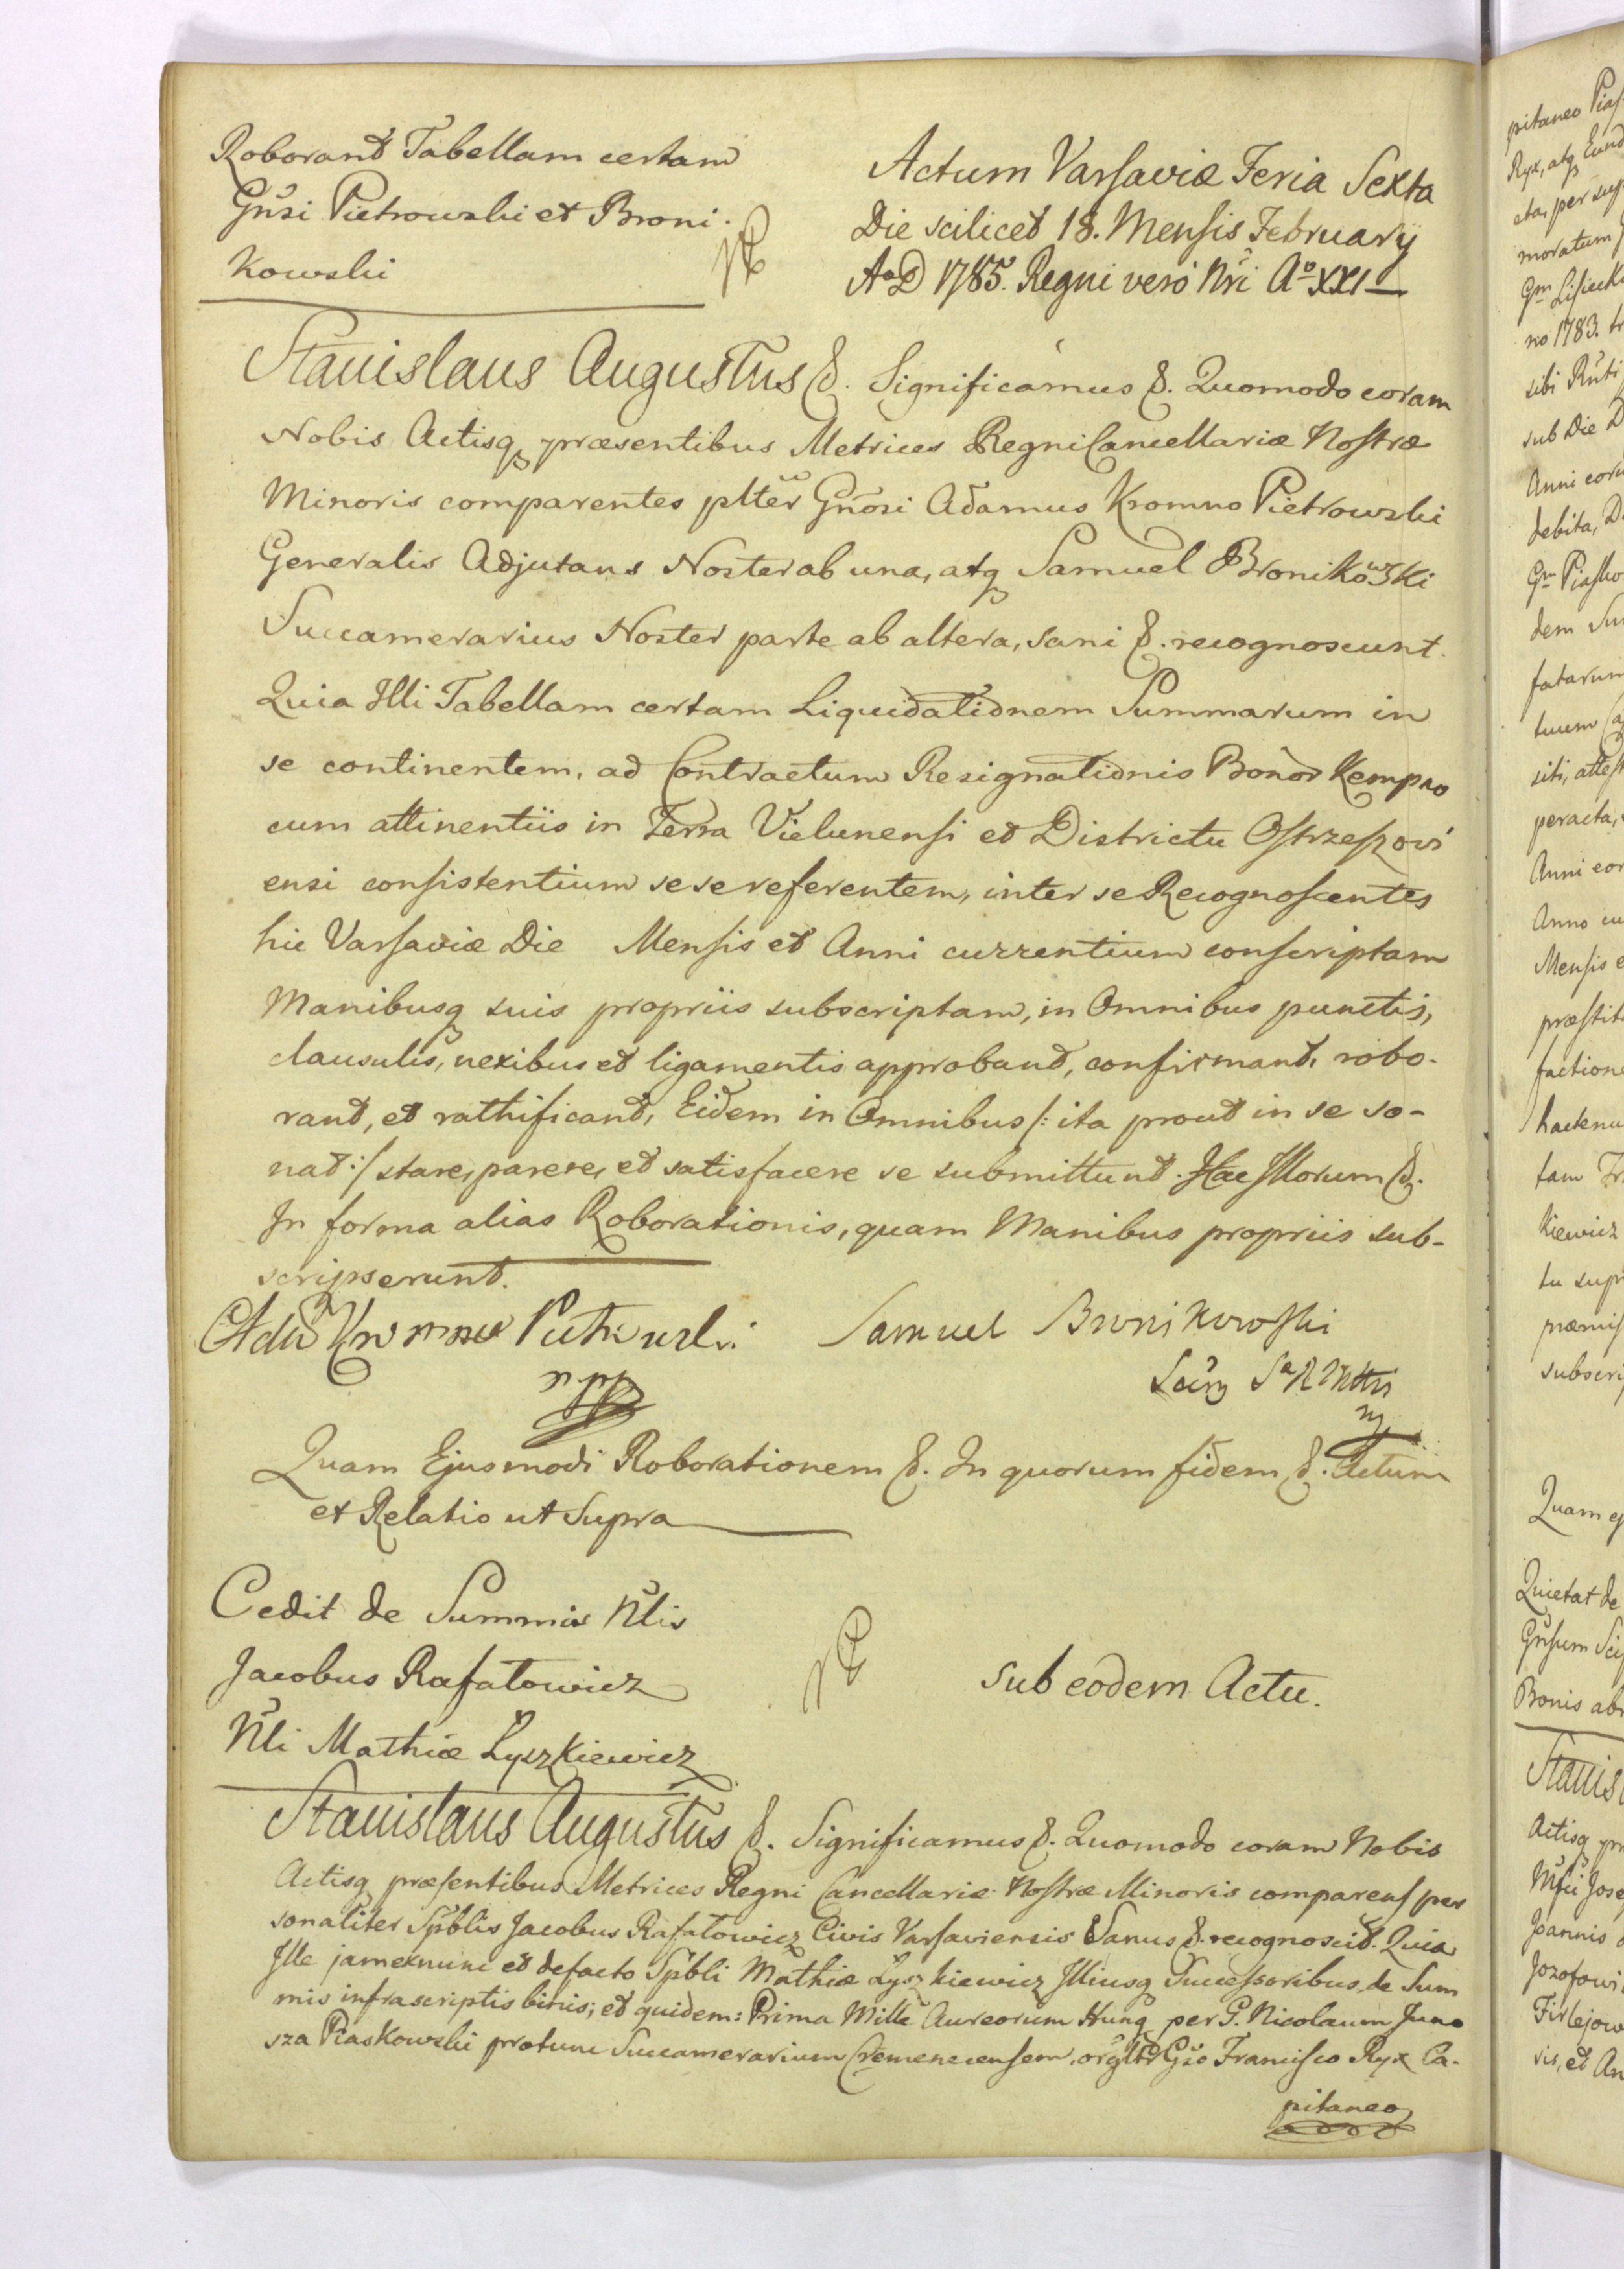 Roborant Tabellam certam
Gn̄si Pietrowski et Broni-
kowski
Actum Varsaviæ Feria Sexta
Die scilicet 18. Mensis Februarij
AoD 1785. Regni vero Nri Ao XXI
Stanislaus Augustus &. Significamus &. Quomodo coram
Nobis Actisq præsentibus Metrices Regni Cancellariæ Nostræ
Minoris comparentes plter Gnosi Adamus Kromno Pietrowski
Generalis Adjutans Noster ab una, atq Samuel Bronikowski
Succamerarius Noster parte ab altera, sani &. recognoscunt.
Quia Illi Tabellam certam Liquidationem Summarum in
se continentem, ad Contractum Resignationis Bonor Kempno
cum attinentiis in Terra Vielunensi et Districtu Ostrzeszovi
ensi consistentium sese referentem, inter se Recognoscentes
hic Varsaviæ Die Mensis et Anni currentium conscriptam
Manibusq suis propriis subscriptam, in Omnibus punctis,
clausulis, nexibus et ligamentis approband, confirmant, robo-
rant, et rathificant, Eidem in Omnibus /: ita prout in se so-
nat :/ stare, parere, et satisfacere se submittunt. Hac Illorum &.
In forma alias Roborationis, quam Manibus propriis sub-
scripserunt.
Adam Kromno Pietrowski
mpp
Samuel Bronikowski
Quam Ejusmodi Roborationem &. In quorum fidem &. Actum
et Relatio ut Supra
Cedit de Summis Nlis
Jacobus Rafałowicz
Nli Mathiæ Łyszkiewicz
Sub eodem Actu.
Stanislaus Augustus &. Significamus &. Quomodo coram Nobis
Actisq præsentibus Metrices Regni Cancellariæ Nostræ Minoris comparens per
sonaliter Spblis Jacobus Rafałowicz Civis Varsaviensis Sanus &. recognoscit. Quia
Ille jamexnunc et defacto Spbli Mathiæ Łyszkiewicz Illiusq Successoribus, de Sum
mis infrascriptis binis; et quidem: Prima Mille Aureorum Hung per G. Nicolaum Juno
sza Piaskowski protunc Succamerarium Cremenecensem, orgltr Gso Francisco Ryx Ca-
pitaneo
pitaneo
Ryx, atq
cta, per
moratum
Gm
no 1783.
sibi
sub Die
Anni
debita,
Gm
dem
siti,
peracta,
Anni
Anno
Mensis
kiewicz
Quam
Quietat de
Gnsum
Bonis
Actisq
Joannis
vis, et